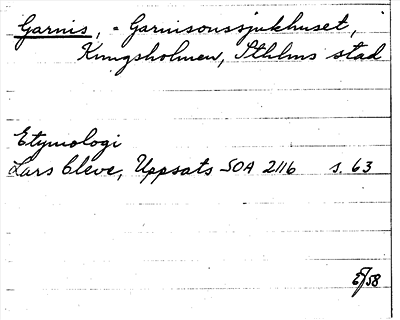 Garnis, = Garnisonssjukhuset,
Kungsholmen, Sthlms stad
Etymologi
Lars Cleve, Uppsats SOA 2116 s. 63
E/58